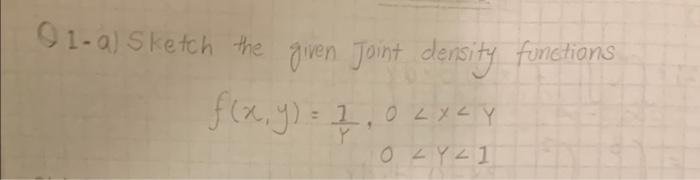 Q1-a) Sketch the given Joint density functions
f(x,y) = 1/Y, 0 < x < Y
0 < Y < 1